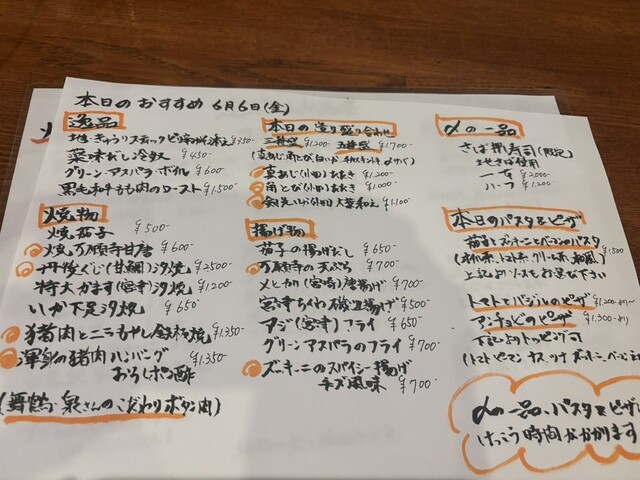 本日のおすすめ 6月6日(金)
逸品
地きゅうりスティックピリ辛みそ添え ¥350
薬味だし冷奴 ¥450-
グリーンアスパラボイル ¥600
黒毛和牛もも肉のロースト ¥1,500
焼物
焼茄子 ¥500-
焼万願寺甘唐 ¥600-
丹後ぐじ(甘鯛)汐焼 ¥2500-
特大カます(宮津)汐焼 ¥1,200-
いか下足汐焼 ¥650
猪肉とニラもやし鉄板焼 ¥1,350-
渾身の猪肉ハンバーグ ¥1,350-
おろしポン酢
(舞鶴・泉さんのこだわりボタン肉)
本日の造り盛り合わせ
三種盛 ¥1,200 五種盛 ¥1,700-
真あじ(小田)たたき ¥1,200
¥1,000
大葉和え ¥1,100
揚げ物
茄子の揚げだし ¥650
万願寺の天ぷら ¥700-
メヒカリ(宮崎)唐揚げ ¥700
宮津ちくわ磯辺揚げ ¥500
アジ(宮津)フライ ¥650
グリーンアスパラのフライ ¥700-
ズッキーニのスパイシー揚げ
チーズ風味 ¥700-
〆の一品
さば押寿司(限定)
地さば使用
一本 ¥2000-
ハーフ ¥1,200
本日のパスタとピザ
茄子とズッキーニとベーコンのパスタ
¥1,500
上記よりソースをお選び下さい
トマトとバジルのピザ ¥1,200-より
アンチョビのピザ ¥1,300-より
下記よりトッピング可
(トマト ピーマン ナス ツナ ズッキーニ ベーコン
〆の一品、パスタとピザは
けっこう時間かかります